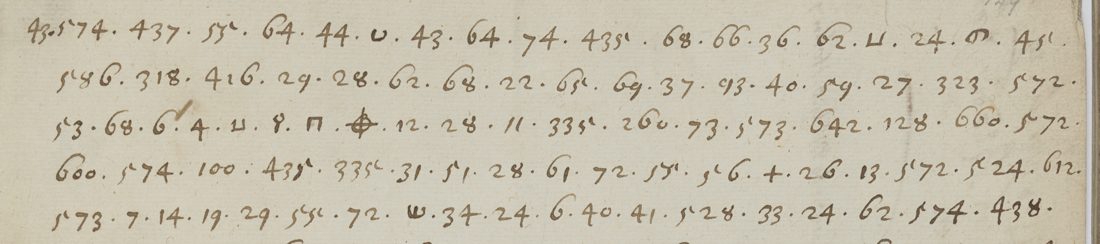 43. 574. 437. 55. 64. 44. ט. 43. 64. 74. 435. 68. 66. 36. 62. 24. 45.
586. 318. 416. 29. 28. 62. 68. 22. 65. 69. 37. 93. 40. 59. 27. 323. 572.
53. 68. 6. 4. 8. п. 12. 28. 11. 335. 260. 73. 573. 642. 128. 660. 572.
600. 574. 100. 435. 335. 31. 51. 28. 61. 72. 55. 56. +. 26. 13. 572. 524. 612.
573. 7. 14. 19. 29. 55. 72. ש. 34. 24. 6. 40. 41. 528. 33. 24. 62. 574. 438.